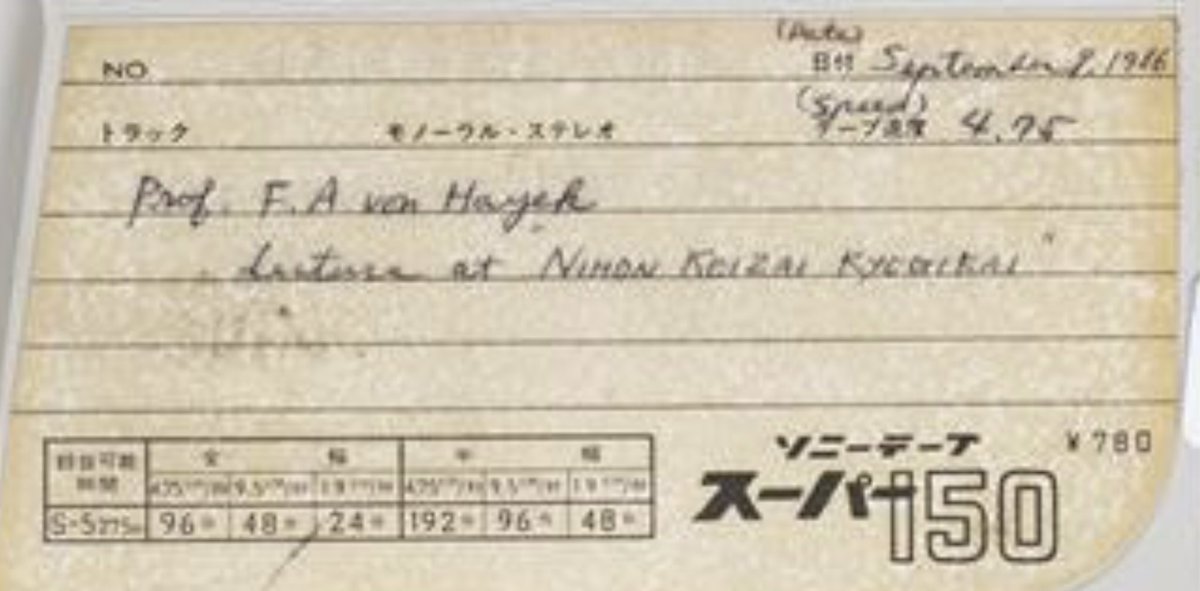 (Date)
NO 日付 September 8, 1966
(Speed)
トラック モノーラル・ステレオ テープ速度 4.75
Prof. F.A von Hayek
Lecture at NIHON KEIZAI KYOGIKAI
ソニーテープ ¥780
スーパー150
録音可能 全 幅 半 幅
時間 4.75cm/s 9.5cm/s 19cm/s 4.75cm/s 9.5cm/s 19cm/s
S-5 275m 96分 48分 24分 192分 96分 48分